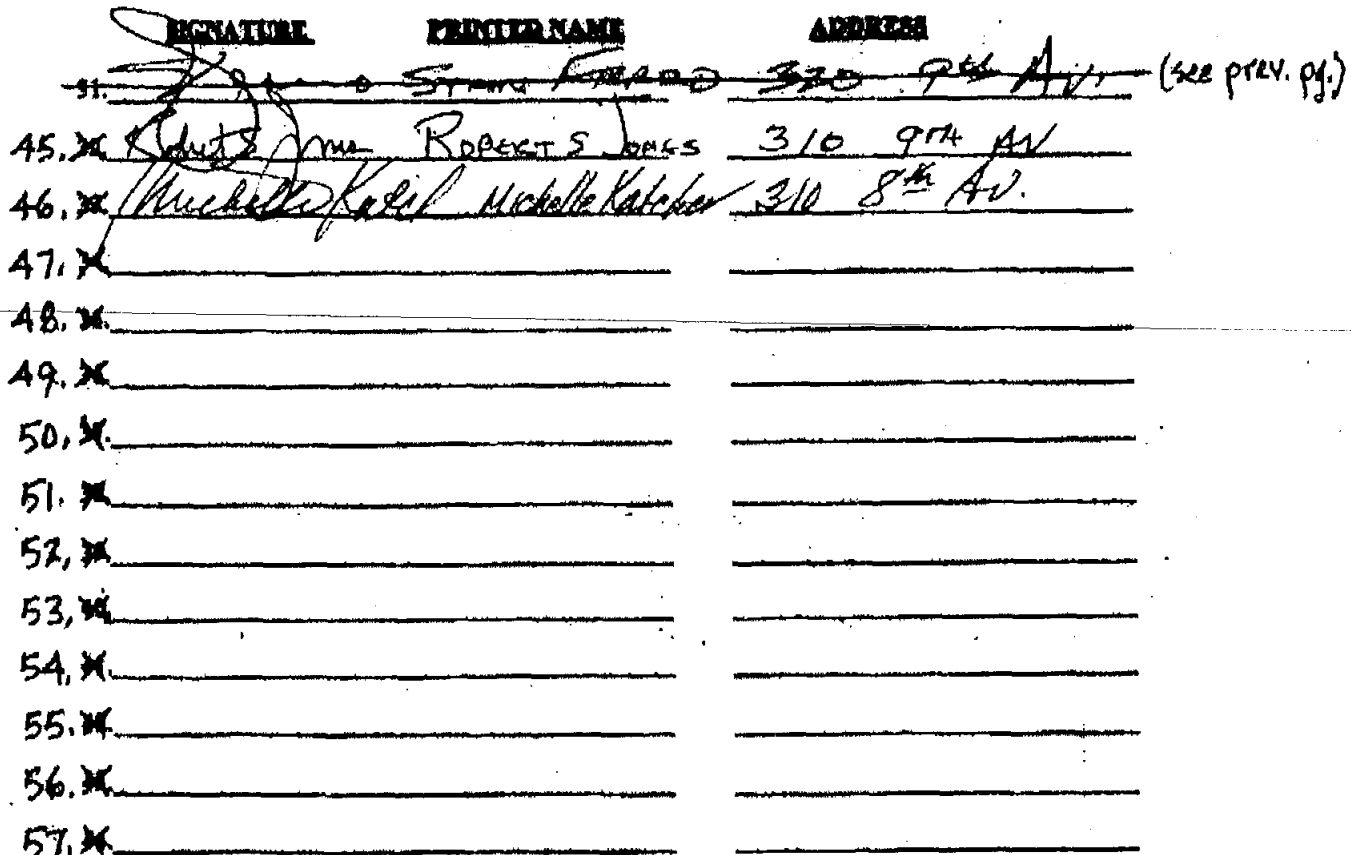 SIGNATURE PRINTED NAME ADDRESS
31. 320 9th Av. (see prev. pg.)
45. Robert S Jones ROBERT S JONES 310 9TH AV
46. Michelle Katcher Michelle Katcher 310 8th Av.
47.
48.
49.
50.
51.
52.
53.
54.
55.
56.
57.